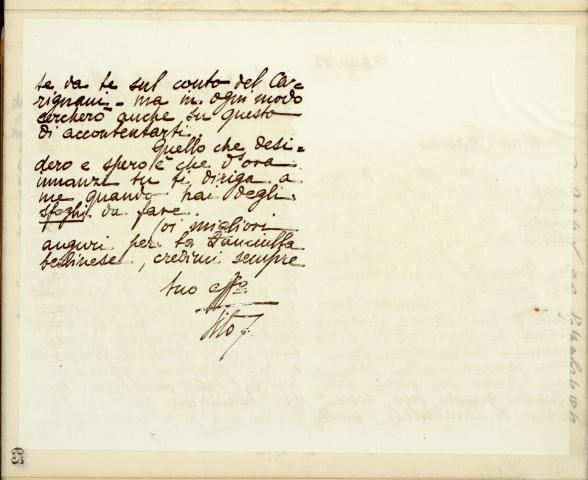 te da te sul conto del Car=
rignani - ma in ogni modo
cercherò anche su questo
di accontentarti.
Quello che desi=
dero e spero è che d'ora
innanzi tu ti diriga a
me quando hai degli
sfoghi da fare.
Coi migliori
auguri per la Fanciulla
berlinese, credimi sempre
tuo aff.o
Tito